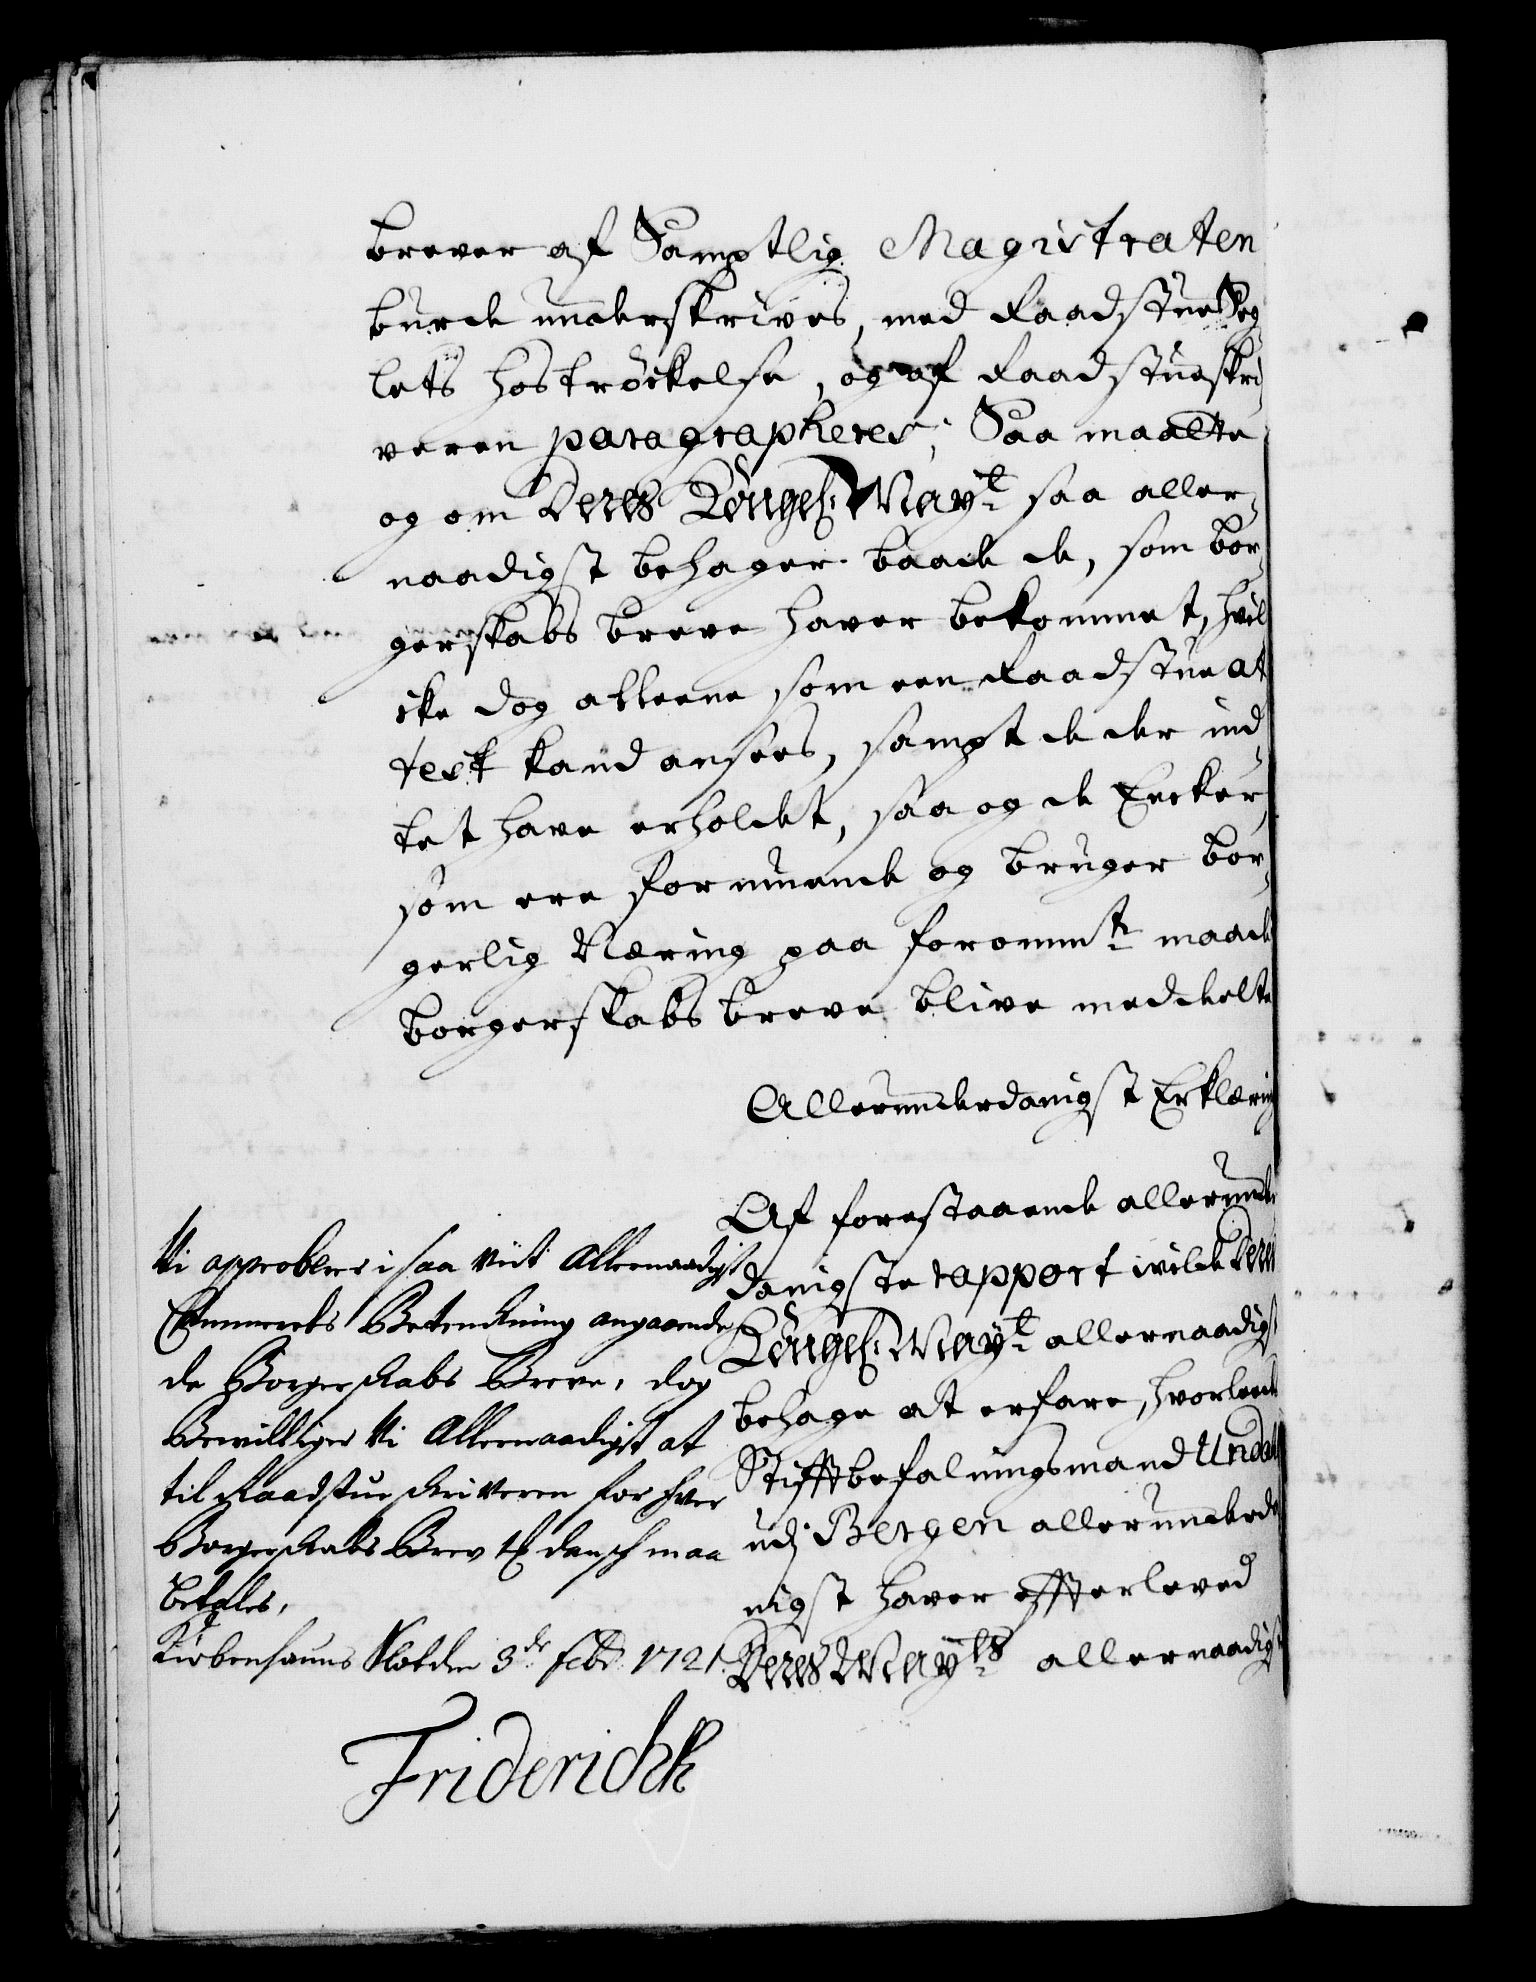 brever af Samptlig Magistraten
burde underskrives, med Raadstue Seg¬
lets hostrøckelse, og af Raadstueskri¬
veren paragrapheres; Saa maatte
og om Deres Kongel: Mayt saa aller¬
naadigst behager baade de, som bor¬
gerskabs breve haver bekommet, hvil¬
cke dog alleene som een Raadstue at¬
test kand ansees, sampt de der ind¬
tet have erholdet, saa og de Encker,
som ere formuende og bruger bor¬
gerlig Næring paa forommte maade
borgerskabs breve blive meddeelte
Allerunderdanigst Erklæring
Af forestaaende allerunder
danigste rapport vilde Deres
Kongel: Mayt allernaadigst
behage at erfare, hvorleedes
Stifftbefalningsmand Undall
udj Bergen allerunderda
nigst haver effterleved
Deres Mayts allernaadigst
Vi approberer i saa Viit Allernaadigst
Cammerets Betenckning angaaende
de Borgerskabs Breve, dog
Bevilliger Vi Allernaadigst at
til Raadstue skriveren for hver
Borgerskabs Brev 1 dansch maa
betales,
Kiøbenhauns Slot den 3de Febr: 1721.
Friderich